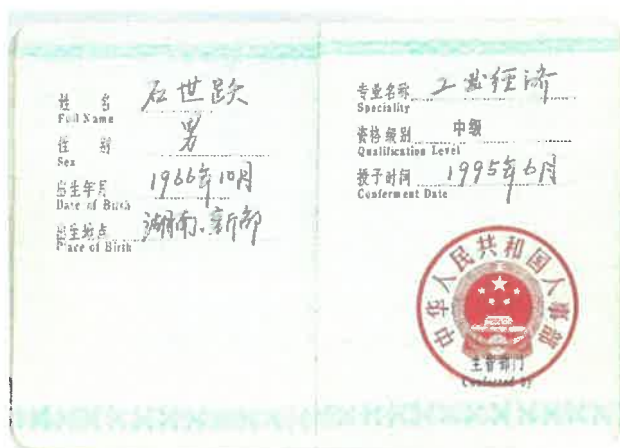 姓 名 石世跃
Full Name
性 别 男
Sex
出生年月 1966年10月
Date of Birth
出生地点 湖南、新邵
Place of Birth
专业名称 工业經济
Speciality
资格级别 中级
Qualification Level
授予时间 1995年6月
Conferment Date
中华人民共和国人事部
主管部门
Conferred by